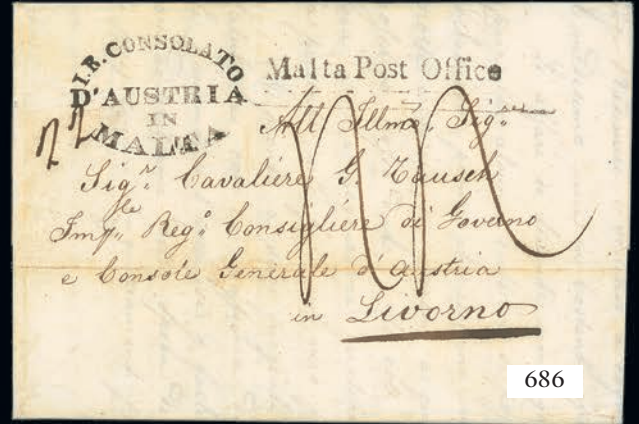 I.R. CONSOLATO
D'AUSTRIA
IN
MALTA
Malta Post Office
All Illmo. Sigo.
Sigr. Cavaliére G. Tausch
Imple Rego. Consigliére di Governo
e Console Generale d'Austria
in Livorno
686